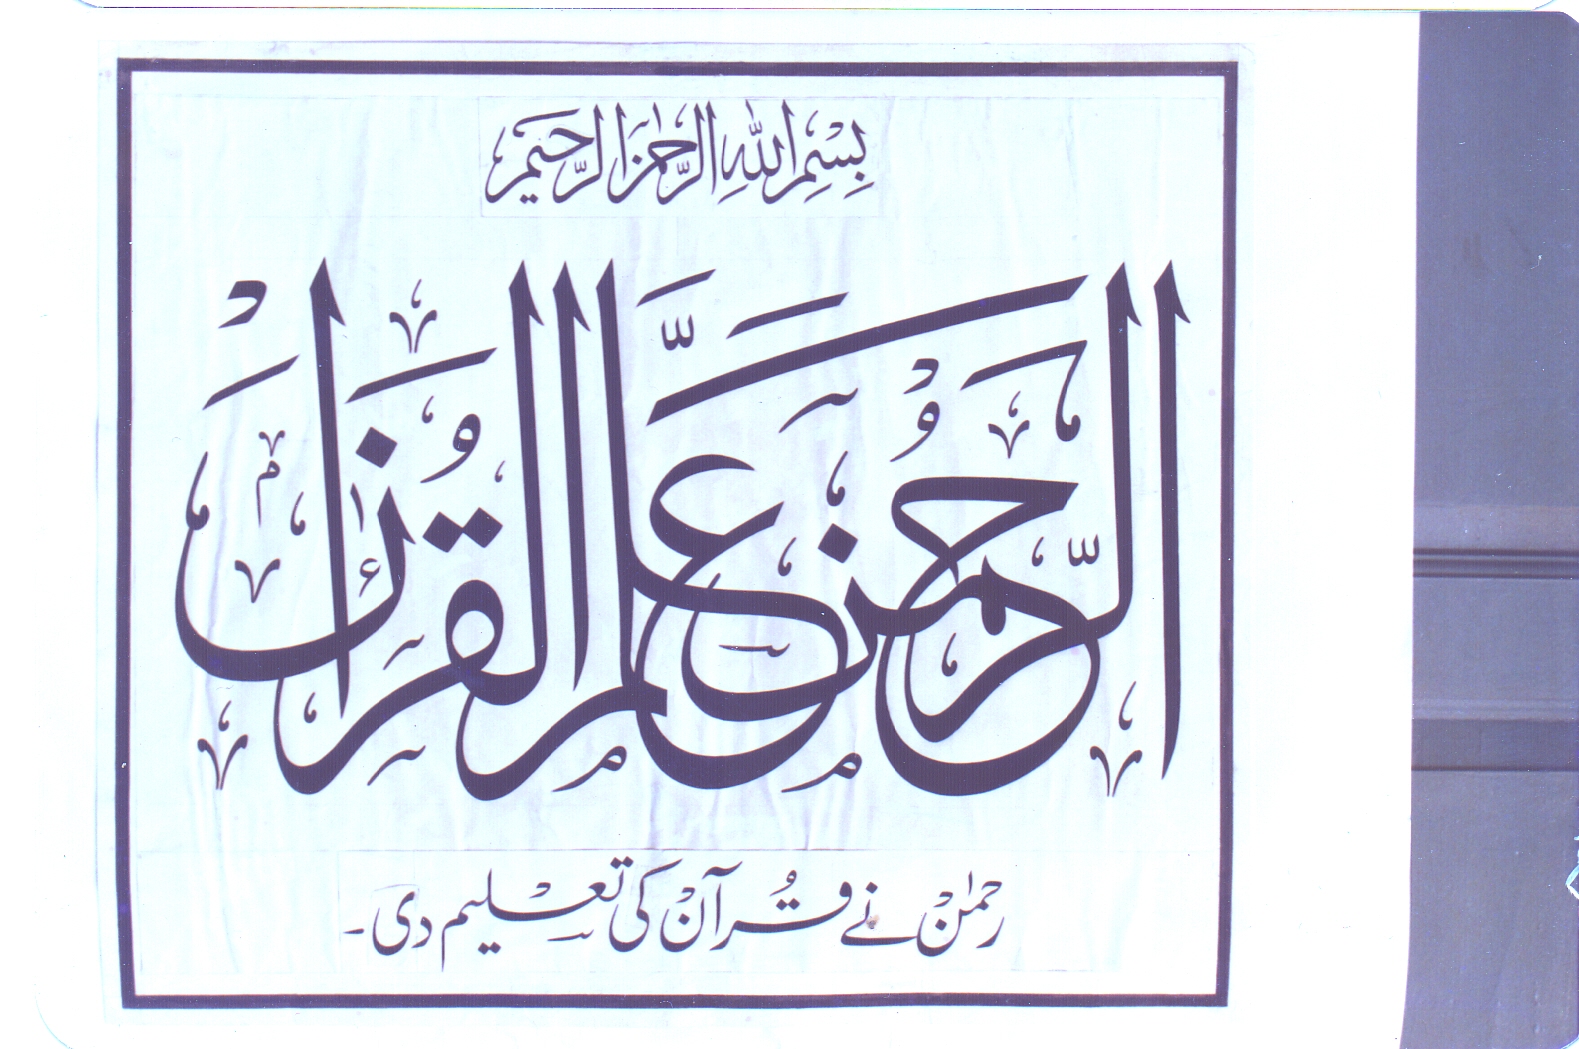 بِسْمِ اللهِ الرَّحْمٰنِ الرَّحِيْمِ
الرَّحْمٰنُ عَلَّمَ الْقُرْاٰنَ
رحمٰن نے قُرآن کی تعلیم دی۔